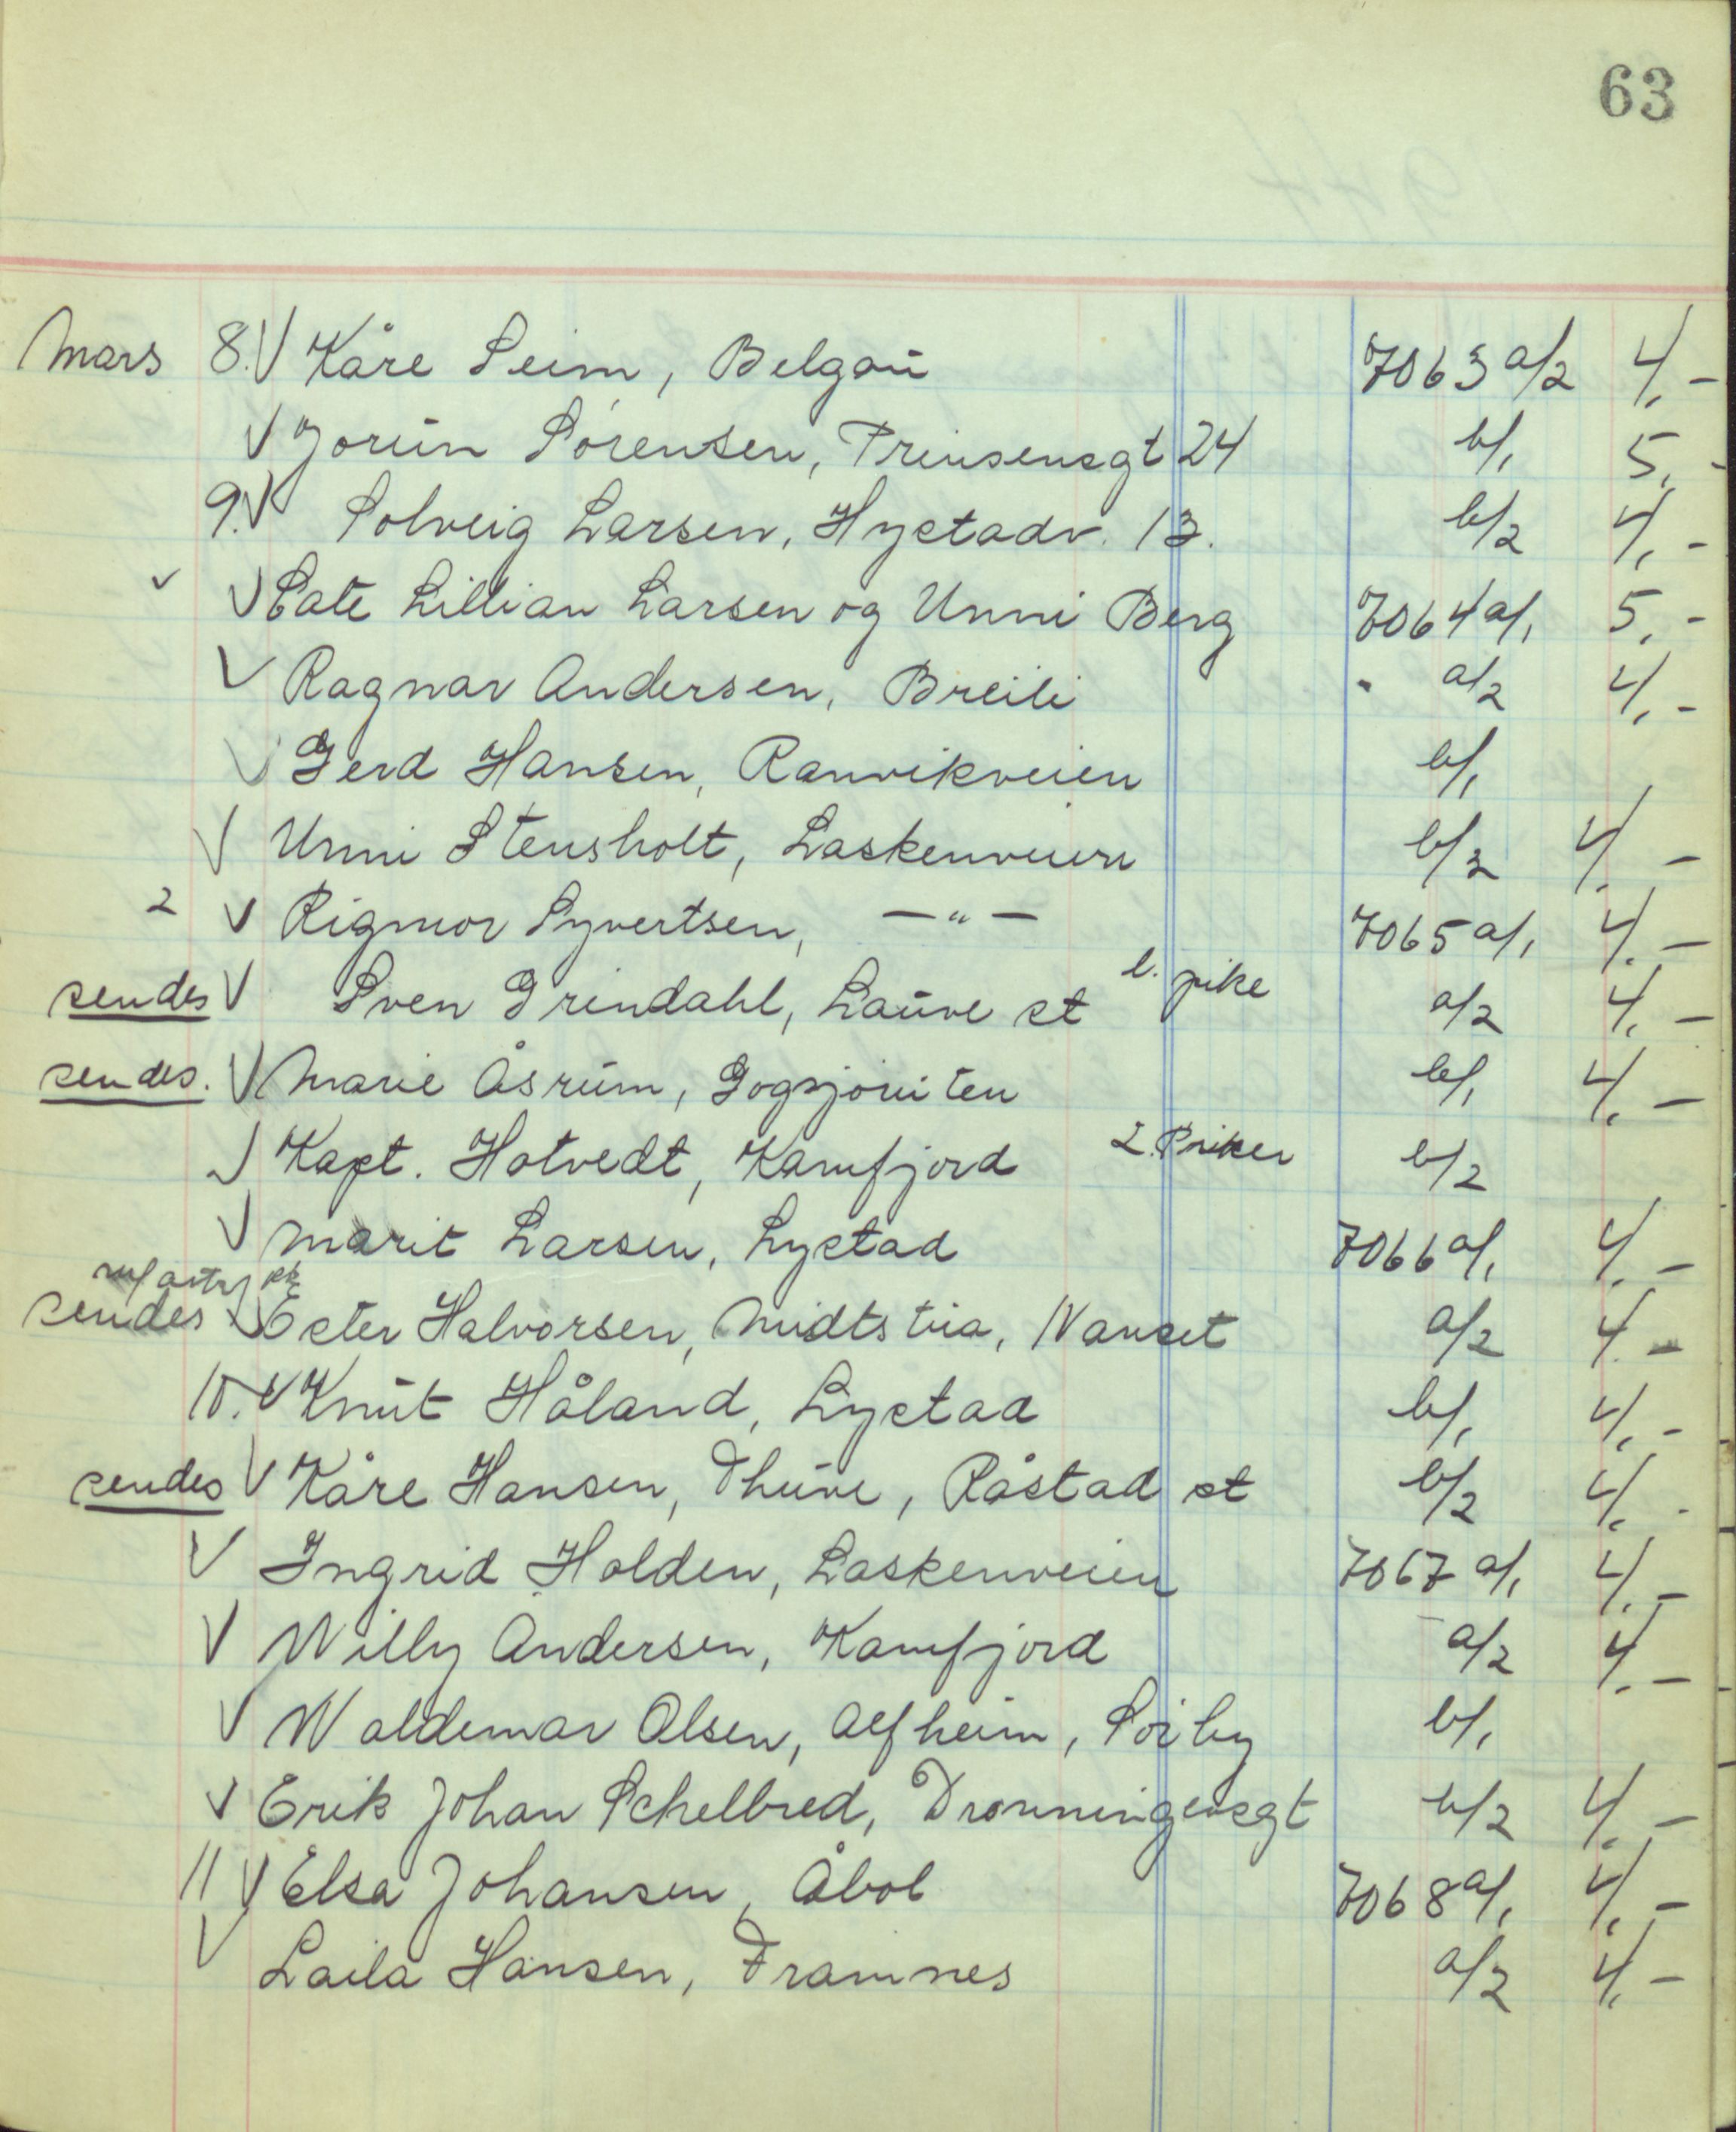 63
Mars 8. V Kåre Seim, Belgaŭ 7063 a/2 4,-
V Jorŭn Sørensen, Prinsensgt 24 b/1 5,-
9. V Solveig Larsen, Hystadv. 13. b/2 4,-
✓ V Cate Lillian Larsen og Unni Berg 7064 a/1 5,-
V Ragnar Andersen, Breili a/2 4,-
V Gerd Hansen, Ranvikveien b/1
V Unni Stensholt, Laskenveien b/2 4,-
2 V Rigmor Syvertsen, —"— 7065 a/1 4,-
sendes V Sven Grindahl, Laŭve st l. pike a/2 4,-
sendes. V Marie Åsrŭm, Gogsjø b/1 4,-
V Kapt. Hotvedt, Kamfjord 2 Piker b/2
V Marit Larsen, Lystad 7066 a/1 4,-
sendes V Ester Halvorsen, Midtstŭa, Nanset a/2 4,-
10. V Knŭt Håland, Lystad b/1 4,-
sendes V Kåre Hansen, Thŭve, Råstad st b/2 4,-
V Ingrid Holden, Laskenveien 7067 a/1 4,-
V Willy Andersen, Kamfjord a/2 4,-
V Waldemar Olsen, Alfheim, b/1
V Erik Johan Schelbred, Dronningensgt b/2 4,-
11 V Elsa Johansen, Åbol 7068 a/1 4,-
V Laila Hansen, Framnes a/2 4,-